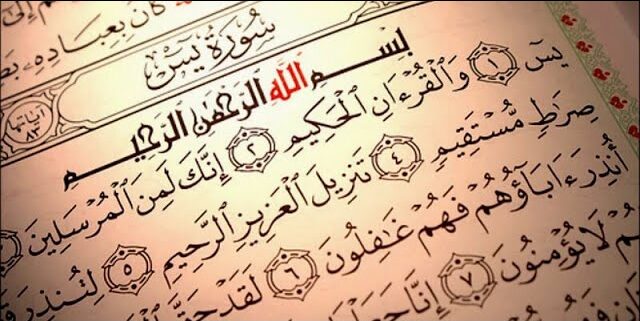 إِلَىٰ
كَانَ بِعِبَادِهِ
سُورَةُ يسٓ
آياتها ٨٣
بِسْمِ ٱللَّهِ ٱلرَّحْمَٰنِ ٱلرَّحِيمِ
يسٓ ١ وَٱلْقُرْءَانِ ٱلْحَكِيمِ ٢ إِنَّكَ لَمِنَ ٱلْمُرْسَلِينَ
صِرَٰطٍ مُّسْتَقِيمٍ ٤ تَنزِيلَ ٱلْعَزِيزِ ٱلرَّحِيمِ ٥ لِتُنذِرَ
أُنذِرَ ءَابَآؤُهُمْ فَهُمْ غَٰفِلُونَ ٦ لَقَدْ حَقَّ
لَا يُؤْمِنُونَ ٧ إِنَّا